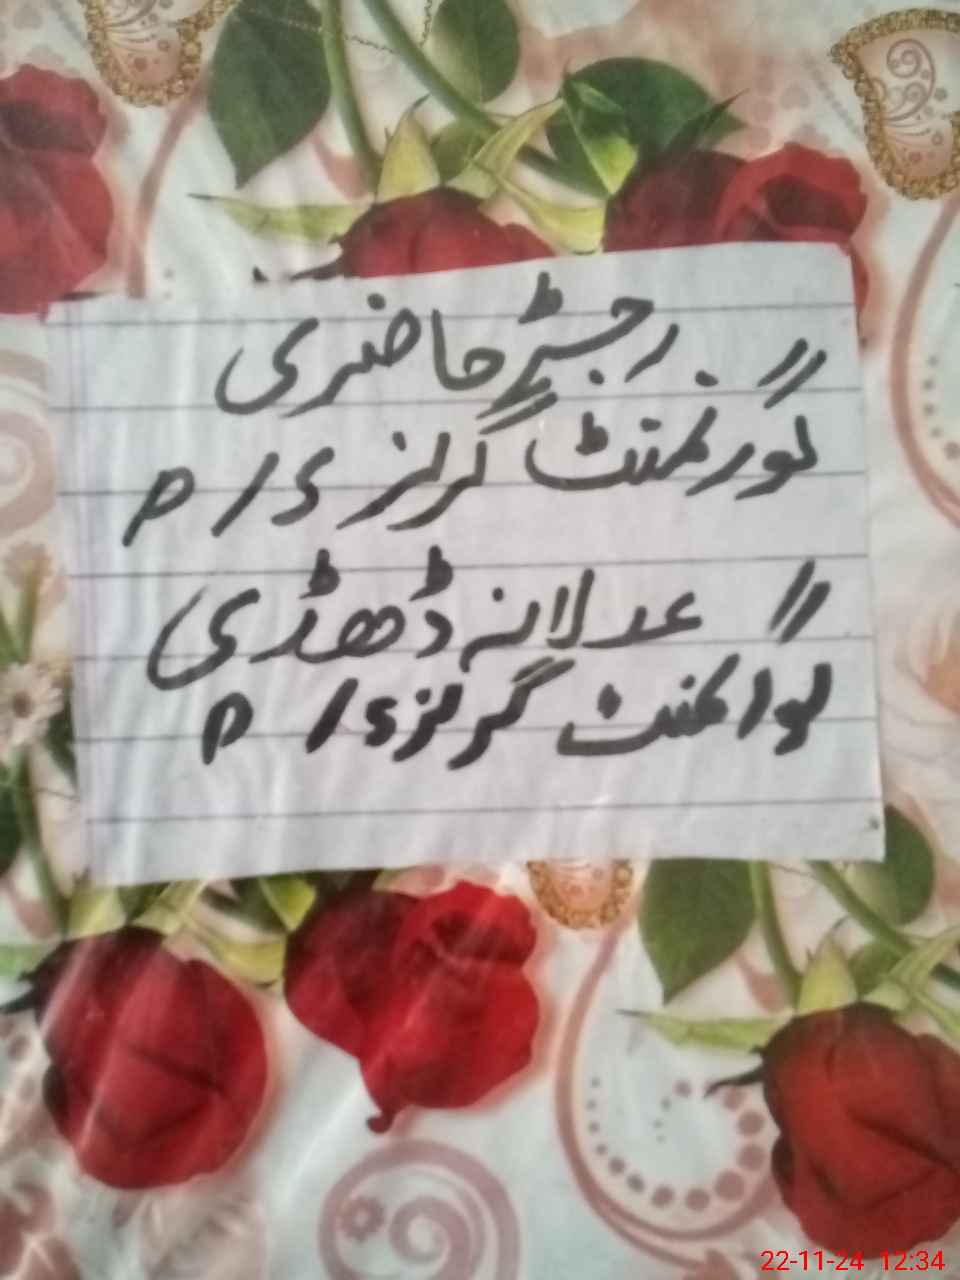 رجسٹر حاضری
گورنمنٹ گرلز P/S
عدلانہ ڈھڈی
گورنمنٹ گرلز P/S
22-11-24 12:34